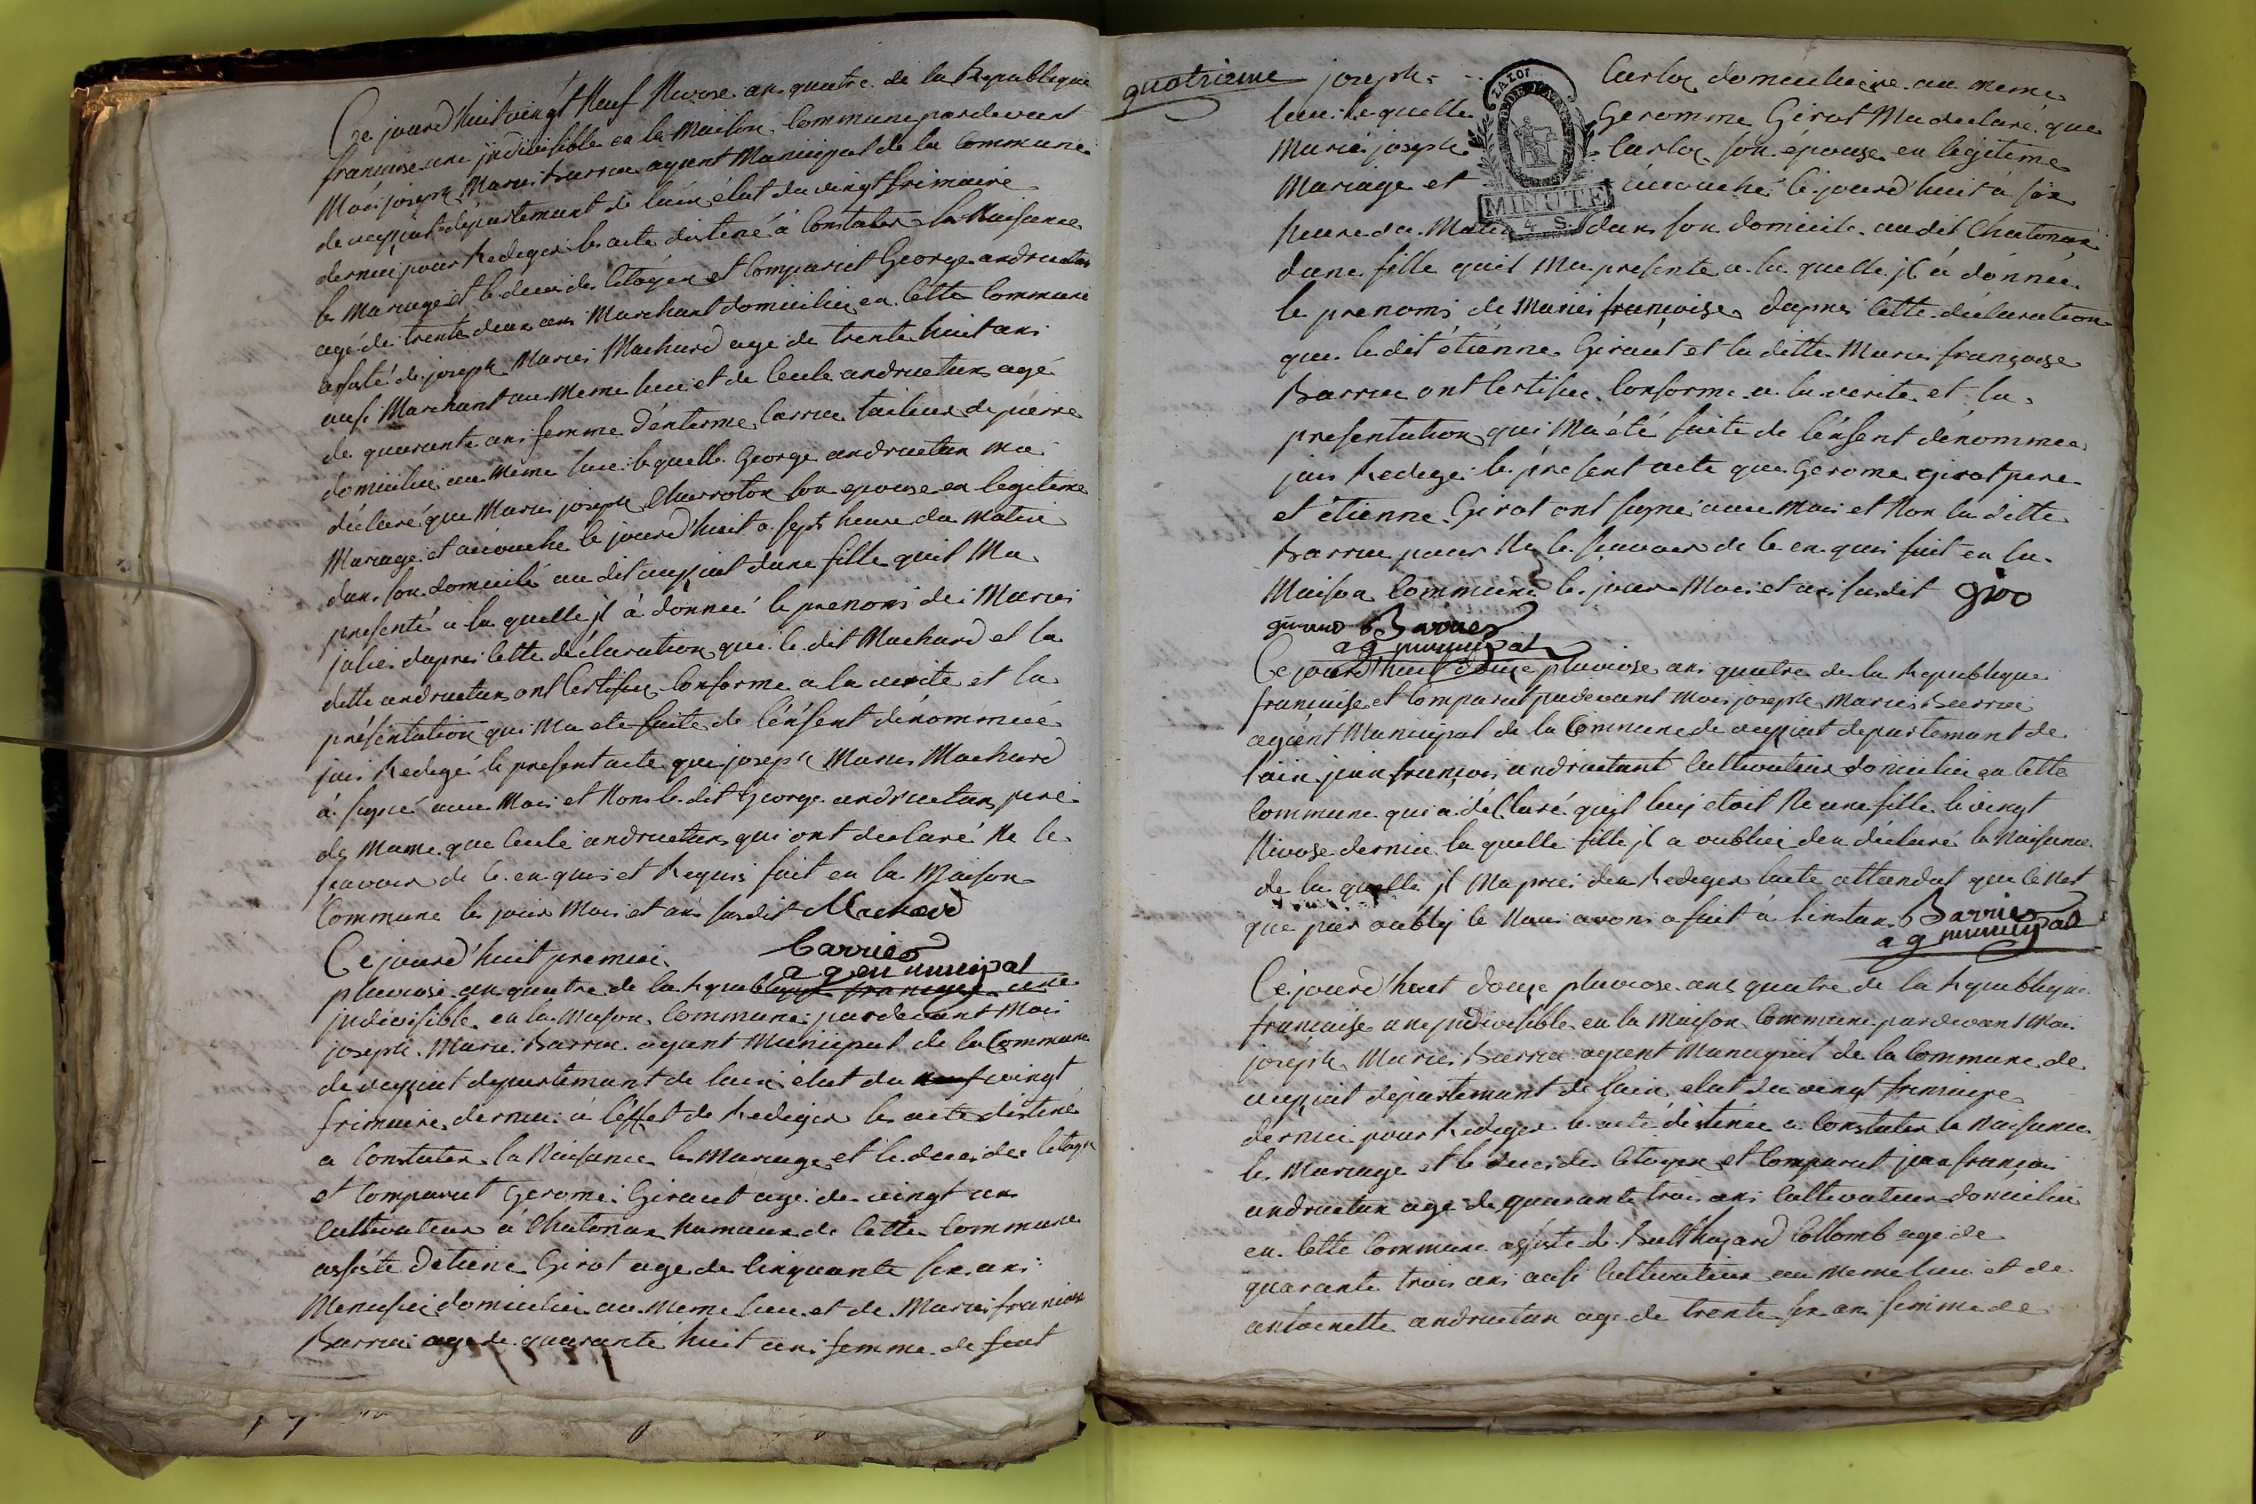 Ce jourd'huit vingt Neuf Nivose an quatre de la Republique
francaise une jndivisible en la Maison Commune pardevant
Moi joseph Marie Barrier agent Municipal de la Commune
de veyziat departement de lain élut du vingt frimaire
dernier pour Rediger les acte distiné à Constater la Naisance
le Mariage et le deces des Citoyen et Comparut George andruetan
agé de trente deux ans Marchant domicilier en Cette Commune
assisté de joseph Marie Machard agé de trente huit ans
ausi Marchant au Meme lieu et de andruetan agé
de quarante ans femme Carrier tailleur de pierre
domicilier au Meme lieu lequelle George andruetan ma
déclaré que Marie joseph Charroton son epouse en legitime
Mariage et acouche le jourd'huit a sept heure du Matin
dans son domicile au dit veyziat dune fille quil Ma
presenté a la quelle jl à donneé le prenoms de Marie
julie dapres Cette déclaration que le dit Machard et la
ditte andruetan ont Certifier Conforme a la verite et la
présentation qui Ma ete faite de lénfent dénommeé
jai Redegé le present acte que joseph Marie Machard
à signé avec Moi et Nons le dit George andruetan pere
de Mame que andruetan qui ont declaré Ne le
savoir de Ce enquis et Requis fait en la Maison
Commune les jour Mois et ans susdit Machard
Barrier
Ce jourd'huit premier
ag en municipal
pluviose an quatre de la Republique francaise une
jndivisible en la Maison Commune pardevant Moi
joseph Marie Barrier agent Municipal de la Commune
de veyziat departemant de lain élut du vingt
frimaire dernier à léffet de Rediger les acte distiné
a Constater la Naisance le Mariage et le deces des Citoyen
et Comparut Gerome Giraut agé de vingt ans
Cultivateur à Chatonax hamaux de Cette Commune
assisté détiene Girot age de Cinquante six ans
Menusier domicilier au Meme lieu et de Marie francoise
Barrier age de quarante huit ans femme de feut
quatrieme joseph Carloz domicilier au meme
lieu lequelle Geromme Girot Ma declaré que
Marie joseph Carloz son épouse en legitime
Mariage et acouché le jourd'huit à six
heure du Matin dans son domicile au dit Chatonax
dune fille quil Ma presente a la quelle jl à dónneé
le prenoms de Marie françoise dapres Cette déclaration
que le dit étiénne Giraut et la ditte Marie françoise
Barrier ont Certifier Conforme a la verite et la
presentation qui Ma été faite de lénfent dénommeé
jai Redegé le présent acte que Gerome girot pere
et étienne Girot ont signé avec Moi et Non la ditte
Barrier pour Ne le savoir de Ce enquis fait en la
Maison Commune les jour Mois et ans susdit giro
giraud Barrier
ag municipal
Ce jourd'huit douze pluviose ans quatre de la Republique
francaise et Comparut pardevant Moi joseph Marie Barrier
agént Municipal de la Commune de veyziat departemant de
lain jean françois andruetant Cultivateur domicilier en Cette
Commune qui a déClaré quil luy etoit Ne une fille le vingt
Nivose dernier la quelle fille jl a oublier den déclaré la Naisance
de la quelle jl Ma priér den Rediger lacte attendut que Ce Nest
que par oubly le Nous avons a fait à linstan Barrier
ag municipal
Ce jourd'huit douze pluviose ans quatre de la Republique
francaise une jndivisible en la Maison Commune pardevant Moi
joséph Marie Barrier agent Municipal de la Commune de
veyziat departemant de lain elut du vingt frimaire
dernier pour Rediger les acte distinée a Constater la Naisance
le Mariage et le deces des Citoyen et Comparut jean françois
andruetan age de quarante trois ans Cultivateur domicilier
en Cette Commune assiste de Balthazard Collomb age de
quarante trois ans ausi Cultivateur au Meme lieu et de
antoinette andruetan age de trente six ans femme de